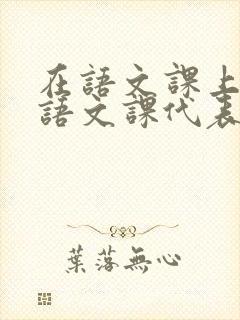 在語文課上
語文課代表
葉落無心